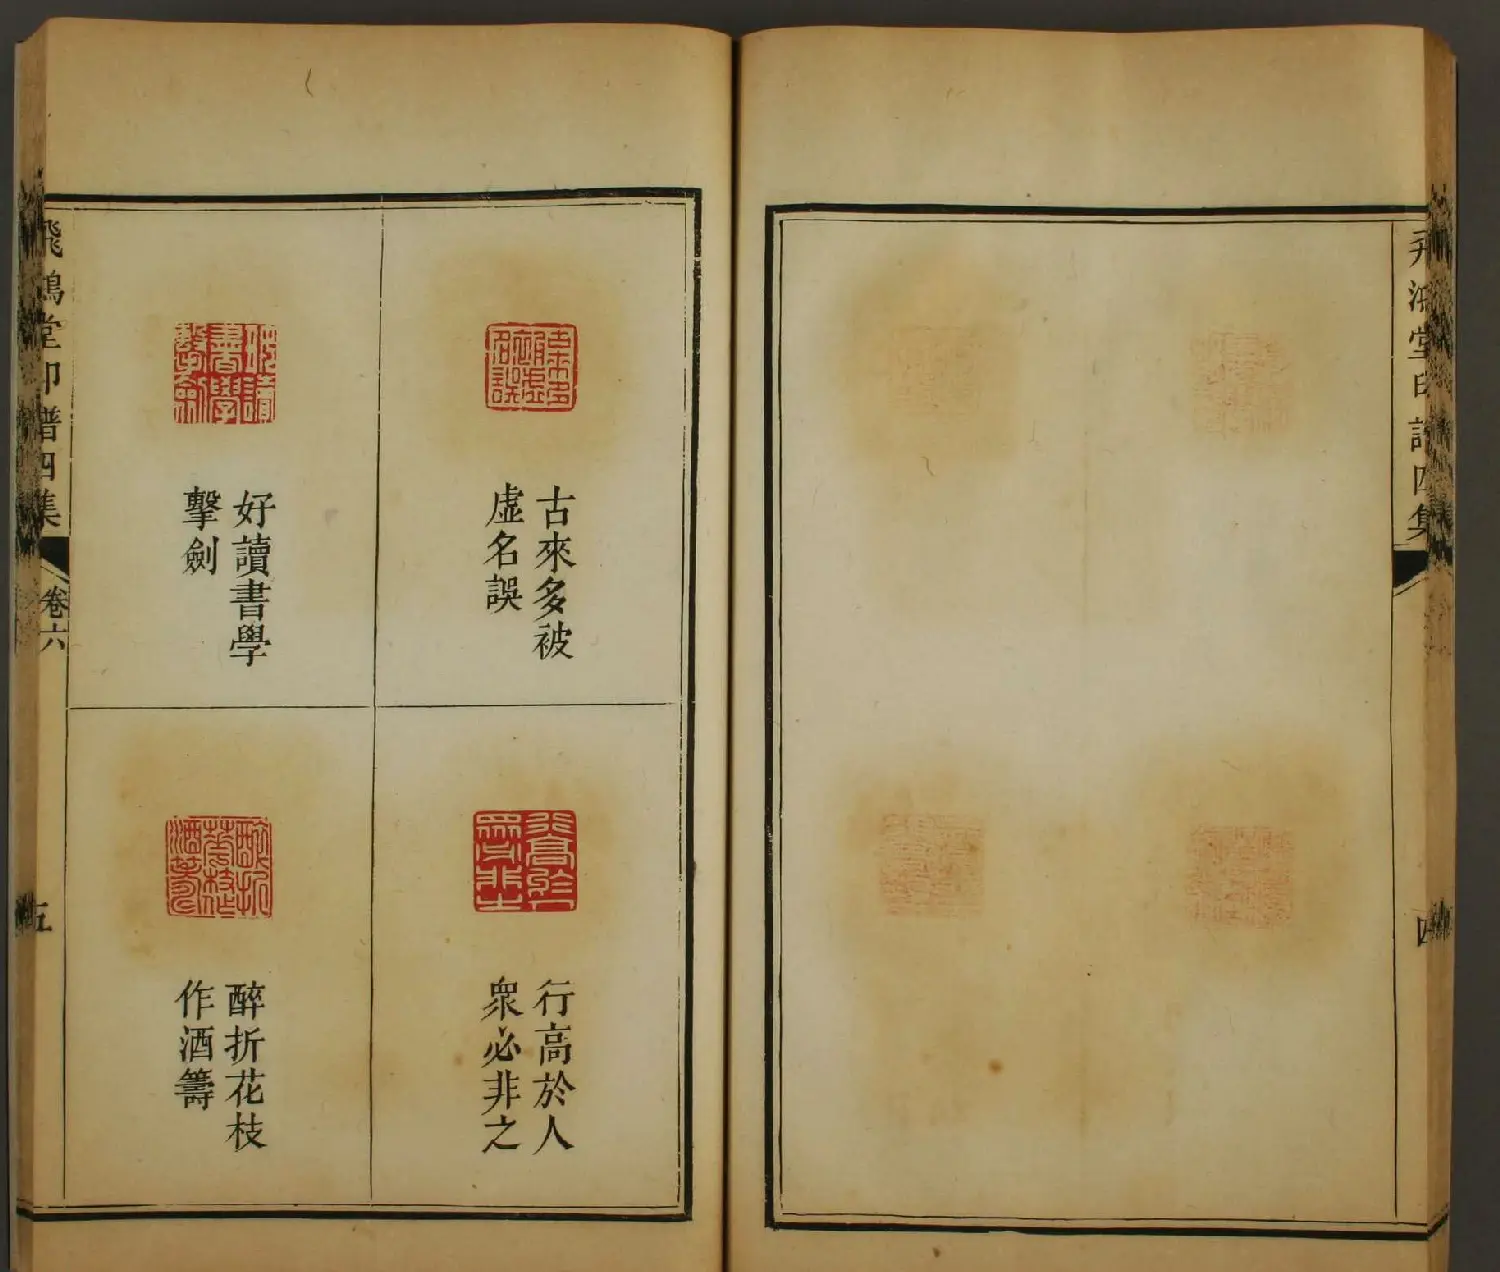 飛鴻堂印譜四集
四
古來多被
虛名誤
行高於人
衆必非之
好讀書學
擊劍
醉折花枝
作酒籌
飛鴻堂印譜四集
卷六
五